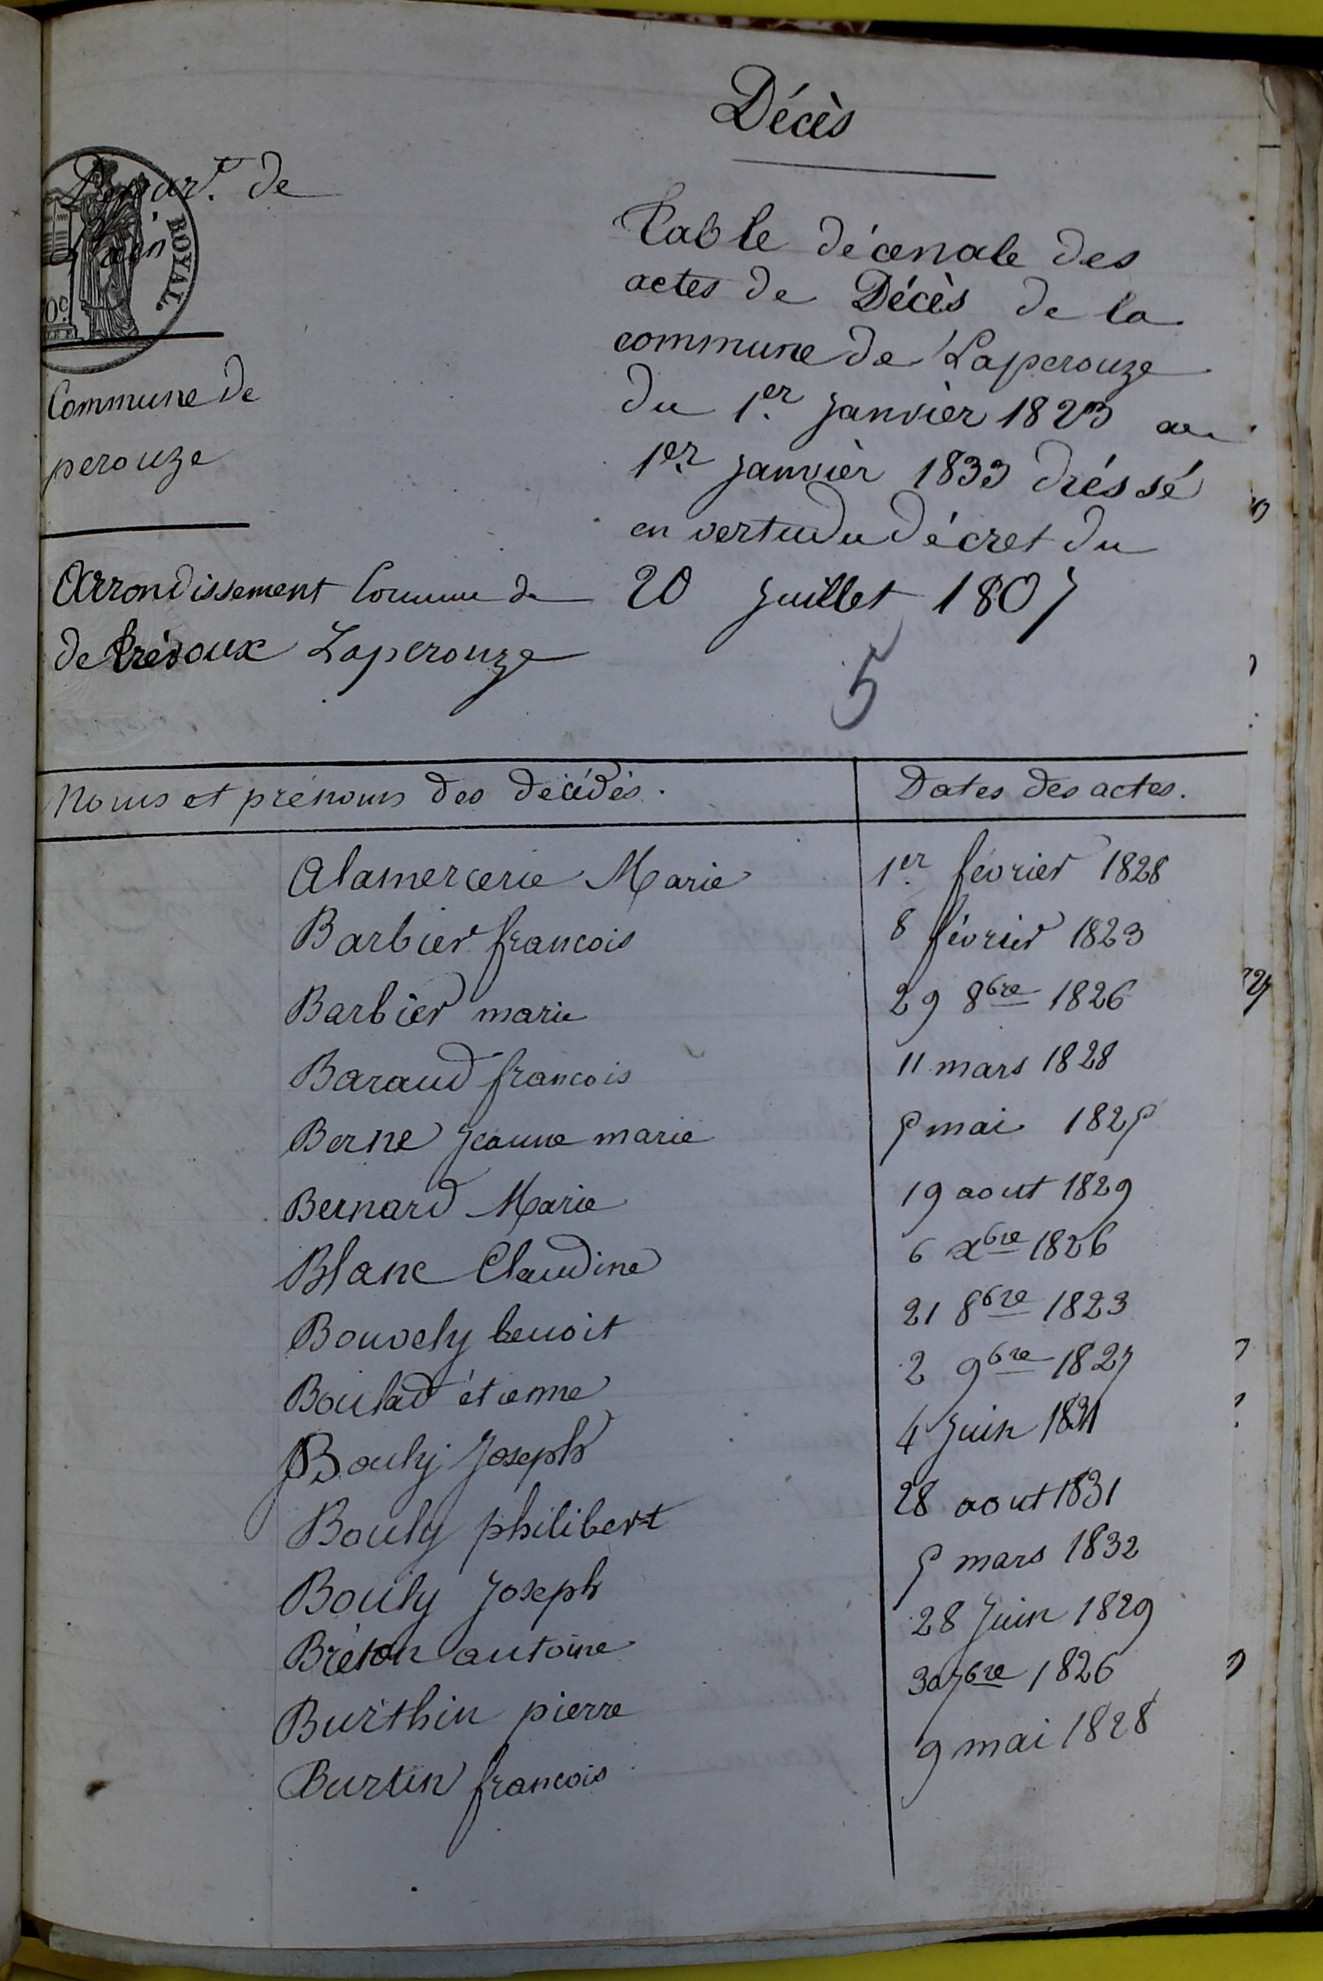 Décès
Depar.t de
l'ain
ROYAL.
Commune de
perouze
Arrondissement Commune de
de trévoux Laperouze
Table décenale des
actes de Décès de la
commune de Laperouze
du 1.er janvièr 1823 au
1.er janvièr 1833 dréssé
en vertu du décret du
20 juillet 1807
5
Noms et prénoms des décédés. Dates des actes.
Alamercerie Marie 1.er février 1828
Barbier francois 8 février 1823
Barbier marie 29 8bre 1826
Baraud francois 11 mars 1828
Berne jeanne marie 5 mai 1825
Bernard Marie 19 aout 1829
Blanc Claudine 6 xbre 1826
Bouvely benoit 21 8bre 1823
Boulad étienne 2 9bre 1827
Bouly Joseph 4 juin 1831
Bouly philibert 28 aout 1831
Bouly Joseph 5 mars 1832
Bréton antoine 28 juin 1829
Burthin pierre 30 7bre 1826
Burtin francois 9 mai 1828